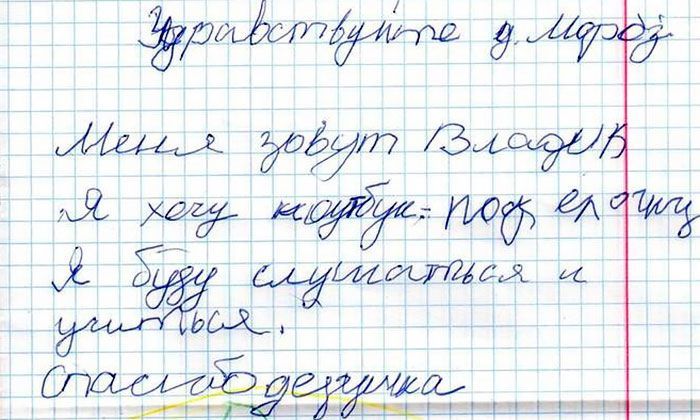 Здравствуйте д. Мороз
Меня зовут Владик
Я хочу ноутбук. под елочку
Я буду слушаться и
учиться.
Спасибо дедушка